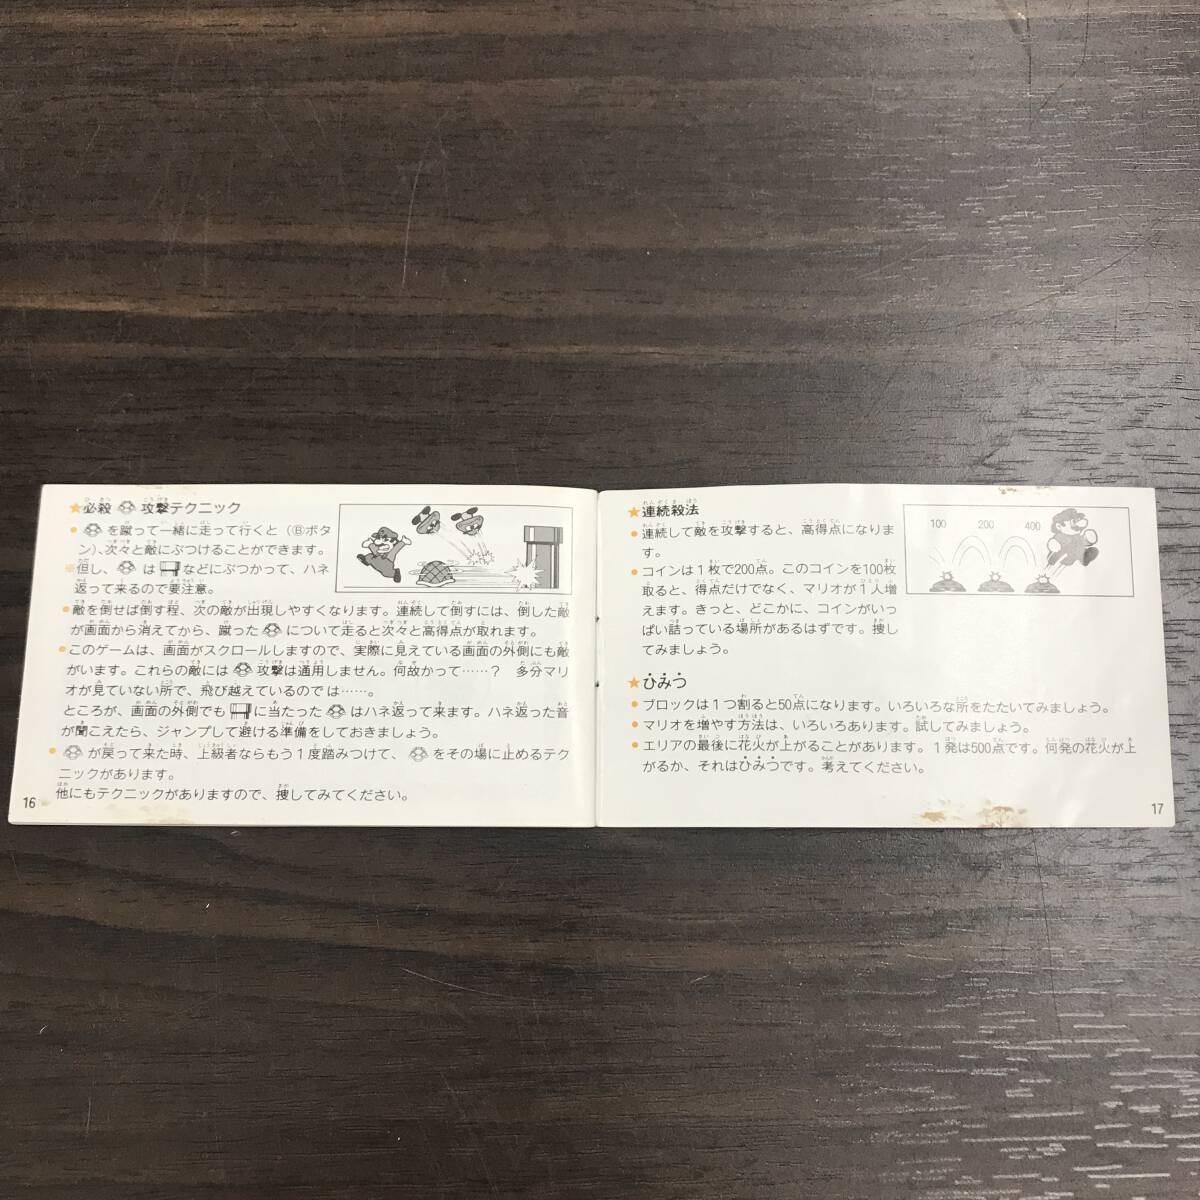 ★必殺 攻撃テクニック
●を蹴って一緒に走って行くと(Ⓑボタ
ン)、次々と敵にぶつけることができます。
※但し、 は などにぶつかって、ハネ
返って来るので要注意。
●敵を倒せば倒す程、次の敵が出現しやすくなります。連続して倒すには、倒した敵
が画面から消えてから、蹴った について走ると次々と高得点が取れます。
●このゲームは、画面がスクロールしますので、実際に見えている画面の外側にも敵
がいます。これらの敵には 攻撃は通用しません。何故かって……? 多分マリ
オが見ていない所で、飛び越えているのでは……。
ところが、画面の外側でも に当たった はハネ返って来ます。ハネ返った音
が聞こえたら、ジャンプして避ける準備をしておきましょう。
● が戻って来た時、上級者ならもう1度踏みつけて、 をその場に止めるテク
ニックがあります。
他にもテクニックがありますので、捜してみてください。
16
★連続殺法
●連続して敵を攻撃すると、高得点になりま
す。
●コインは1枚で200点。このコインを100枚
取ると、得点だけでなく、マリオが1人増
えます。きっと、どこかに、コインがいっ
ぱい詰っている場所があるはずです。捜し
てみましょう。
100 200 400
★ひみつ
●ブロックは1つ割ると50点になります。いろいろな所をたたいてみましょう。
●マリオを増やす方法は、いろいろあります。試してみましょう。
●エリアの最後に花火が上がることがあります。1発は500点です。何発の花火が上
がるか、それはひみつです。考えてください。
17